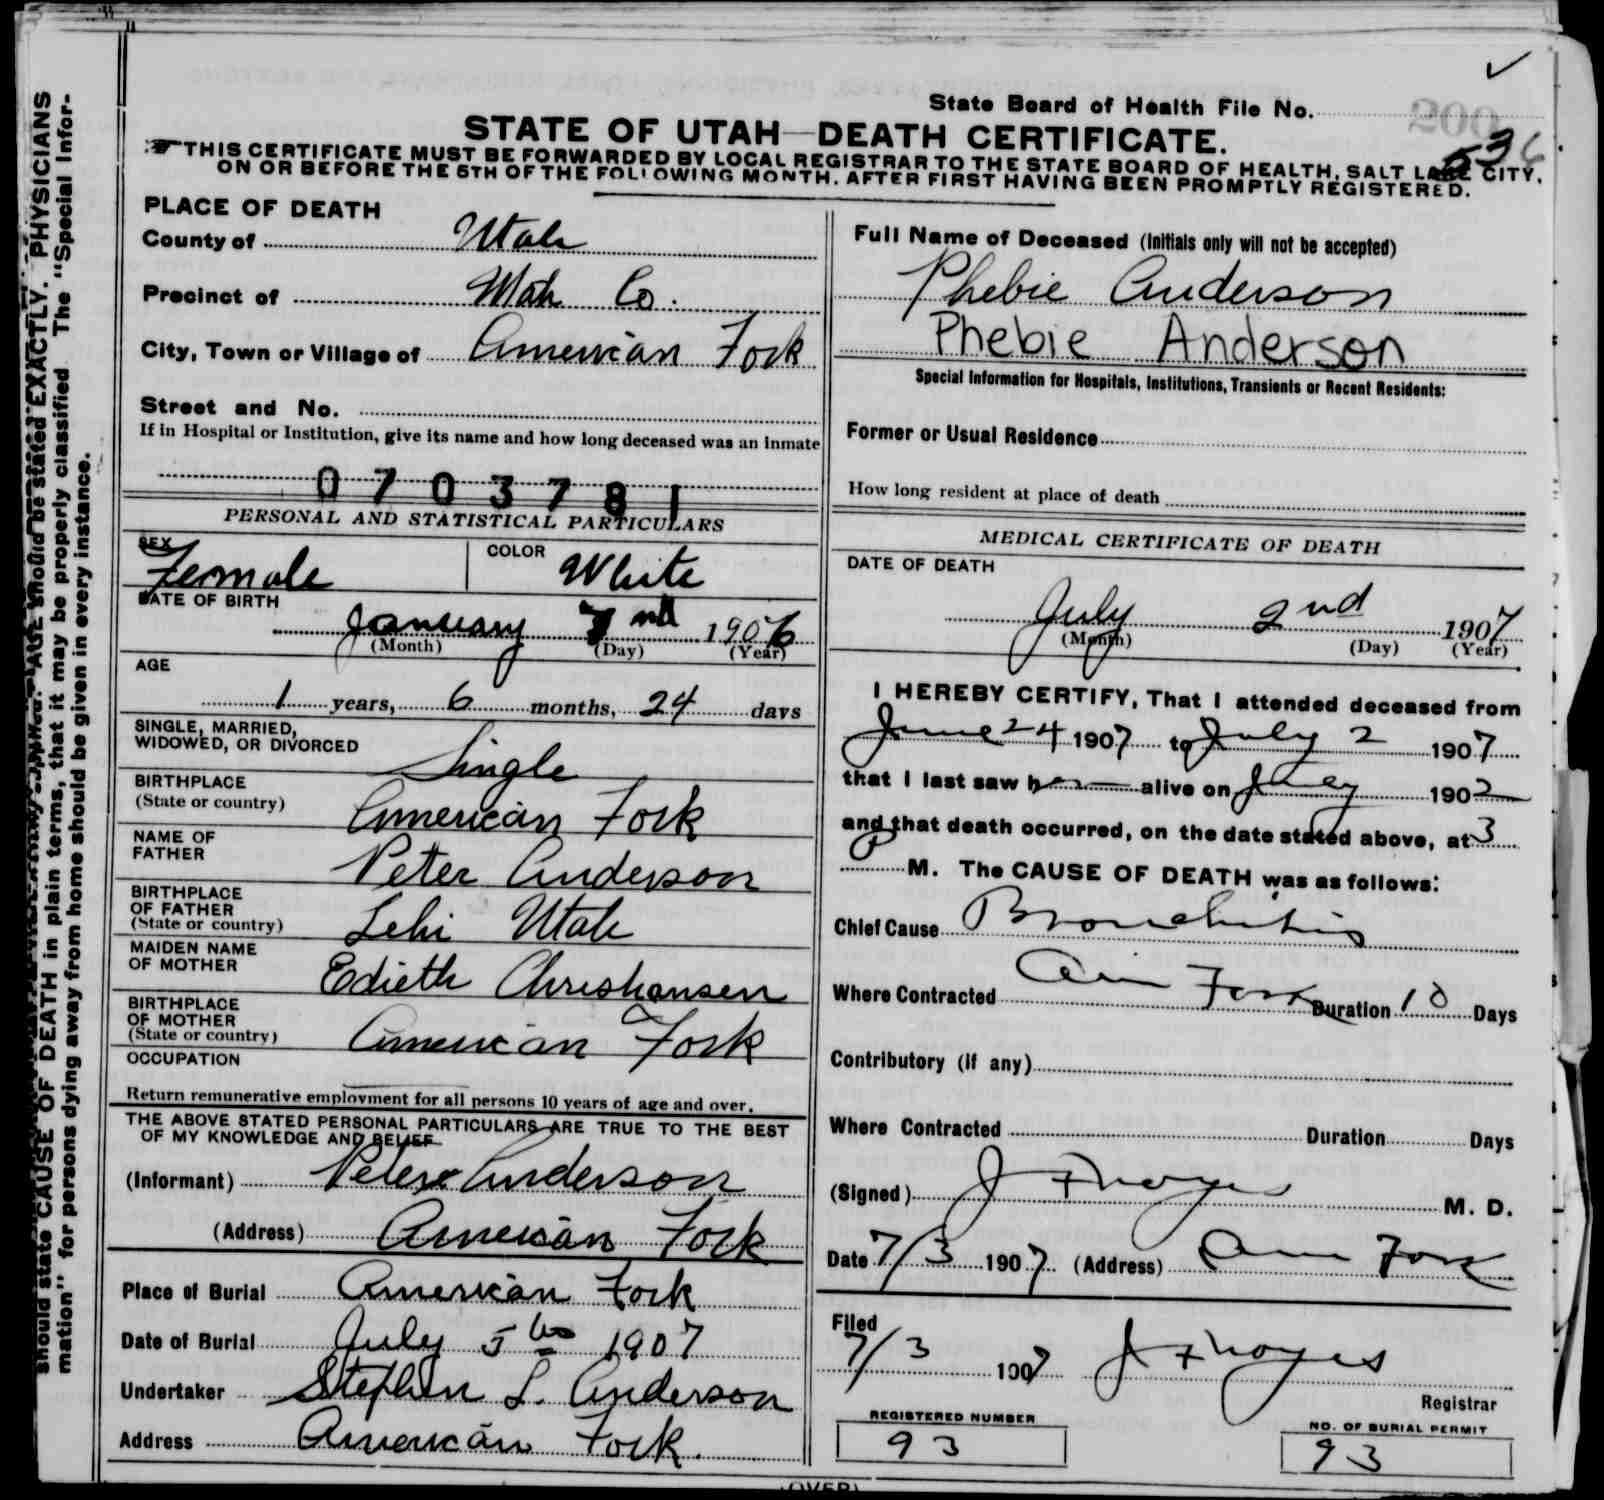 State Board of Health File No. 200
536
STATE OF UTAH—DEATH CERTIFICATE.
THIS CERTIFICATE MUST BE FORWARDED BY LOCAL REGISTRAR TO THE STATE BOARD OF HEALTH, SALT LAKE CITY,
ON OR BEFORE THE 5TH OF THE FOLLOWING MONTH. AFTER FIRST HAVING BEEN PROMPTLY REGISTERED.
AGE should be stated EXACTLY. PHYSICIANS
should state CAUSE OF DEATH in plain terms, that it may be properly classified The "Special Infor-
mation" for persons dying away from home should be given in every instance.
PLACE OF DEATH
County of Utah
Precinct of Utah Co.
City, Town or Village of American Fork
Street and No.
If in Hospital or Institution, give its name and how long deceased was an inmate
0703781
PERSONAL AND STATISTICAL PARTICULARS
SEX Female COLOR White
DATE OF BIRTH
January nd 1906
(Month) (Day) (Year)
AGE
1 years, 6 months, 24 days
SINGLE, MARRIED,
WIDOWED, OR DIVORCED Single
BIRTHPLACE
(State or country) American Fork
NAME OF
FATHER Peter Anderson
BIRTHPLACE
OF FATHER
(State or country) Lehi Utah
MAIDEN NAME
OF MOTHER Edieth Christiansen
BIRTHPLACE
OF MOTHER
(State or country) American Fork
OCCUPATION
Return remunerative employment for all persons 10 years of age and over.
THE ABOVE STATED PERSONAL PARTICULARS ARE TRUE TO THE BEST
OF MY KNOWLEDGE AND BELIEF
(Informant) Peter Anderson
(Address) American Fork
Place of Burial American Fork
Date of Burial July 5th 1907
Undertaker Stephen L. Anderson
Address American Fork.
Full Name of Deceased (Initials only will not be accepted)
Phebie Anderson
Phebie Anderson
Special Information for Hospitals, Institutions, Transients or Recent Residents:
Former or Usual Residence
How long resident at place of death
MEDICAL CERTIFICATE OF DEATH
DATE OF DEATH
July 2nd 1907
(Month) (Day) (Year)
I HEREBY CERTIFY, That I attended deceased from
June 24 1907 to July 2 1907
that I last saw her alive on July 1902
and that death occurred, on the date stated above, at 3
P M. The CAUSE OF DEATH was as follows:
Chief Cause Bronchitis
Where Contracted Am Fork Duration 10 Days
Contributory (if any)
Where Contracted Duration Days
(Signed) J F Noyes M. D.
Date 7/3 1907 (Address) Am Fork
Filed
7/3 1907 J F Noyes
Registrar
REGISTERED NUMBER
93
NO. OF BURIAL PERMIT
93
(OVER)